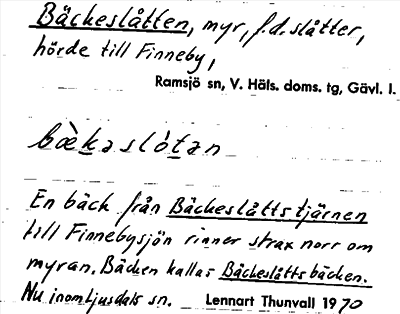 Bäckeslåtten, myr, f.d. slåtter,
hörde till Finneby,
Ramsjö sn, V. Häls. doms. tg, Gävl. l.
bæ̀kaslótan
En bäck från Bäckeslåttstjärnen
till Finnebysjön rinner strax norr om
myran. Bäcken kallas Bäckeslåttsbäcken.
Nu inom Ljusdals sn. Lennart Thunvall 1970